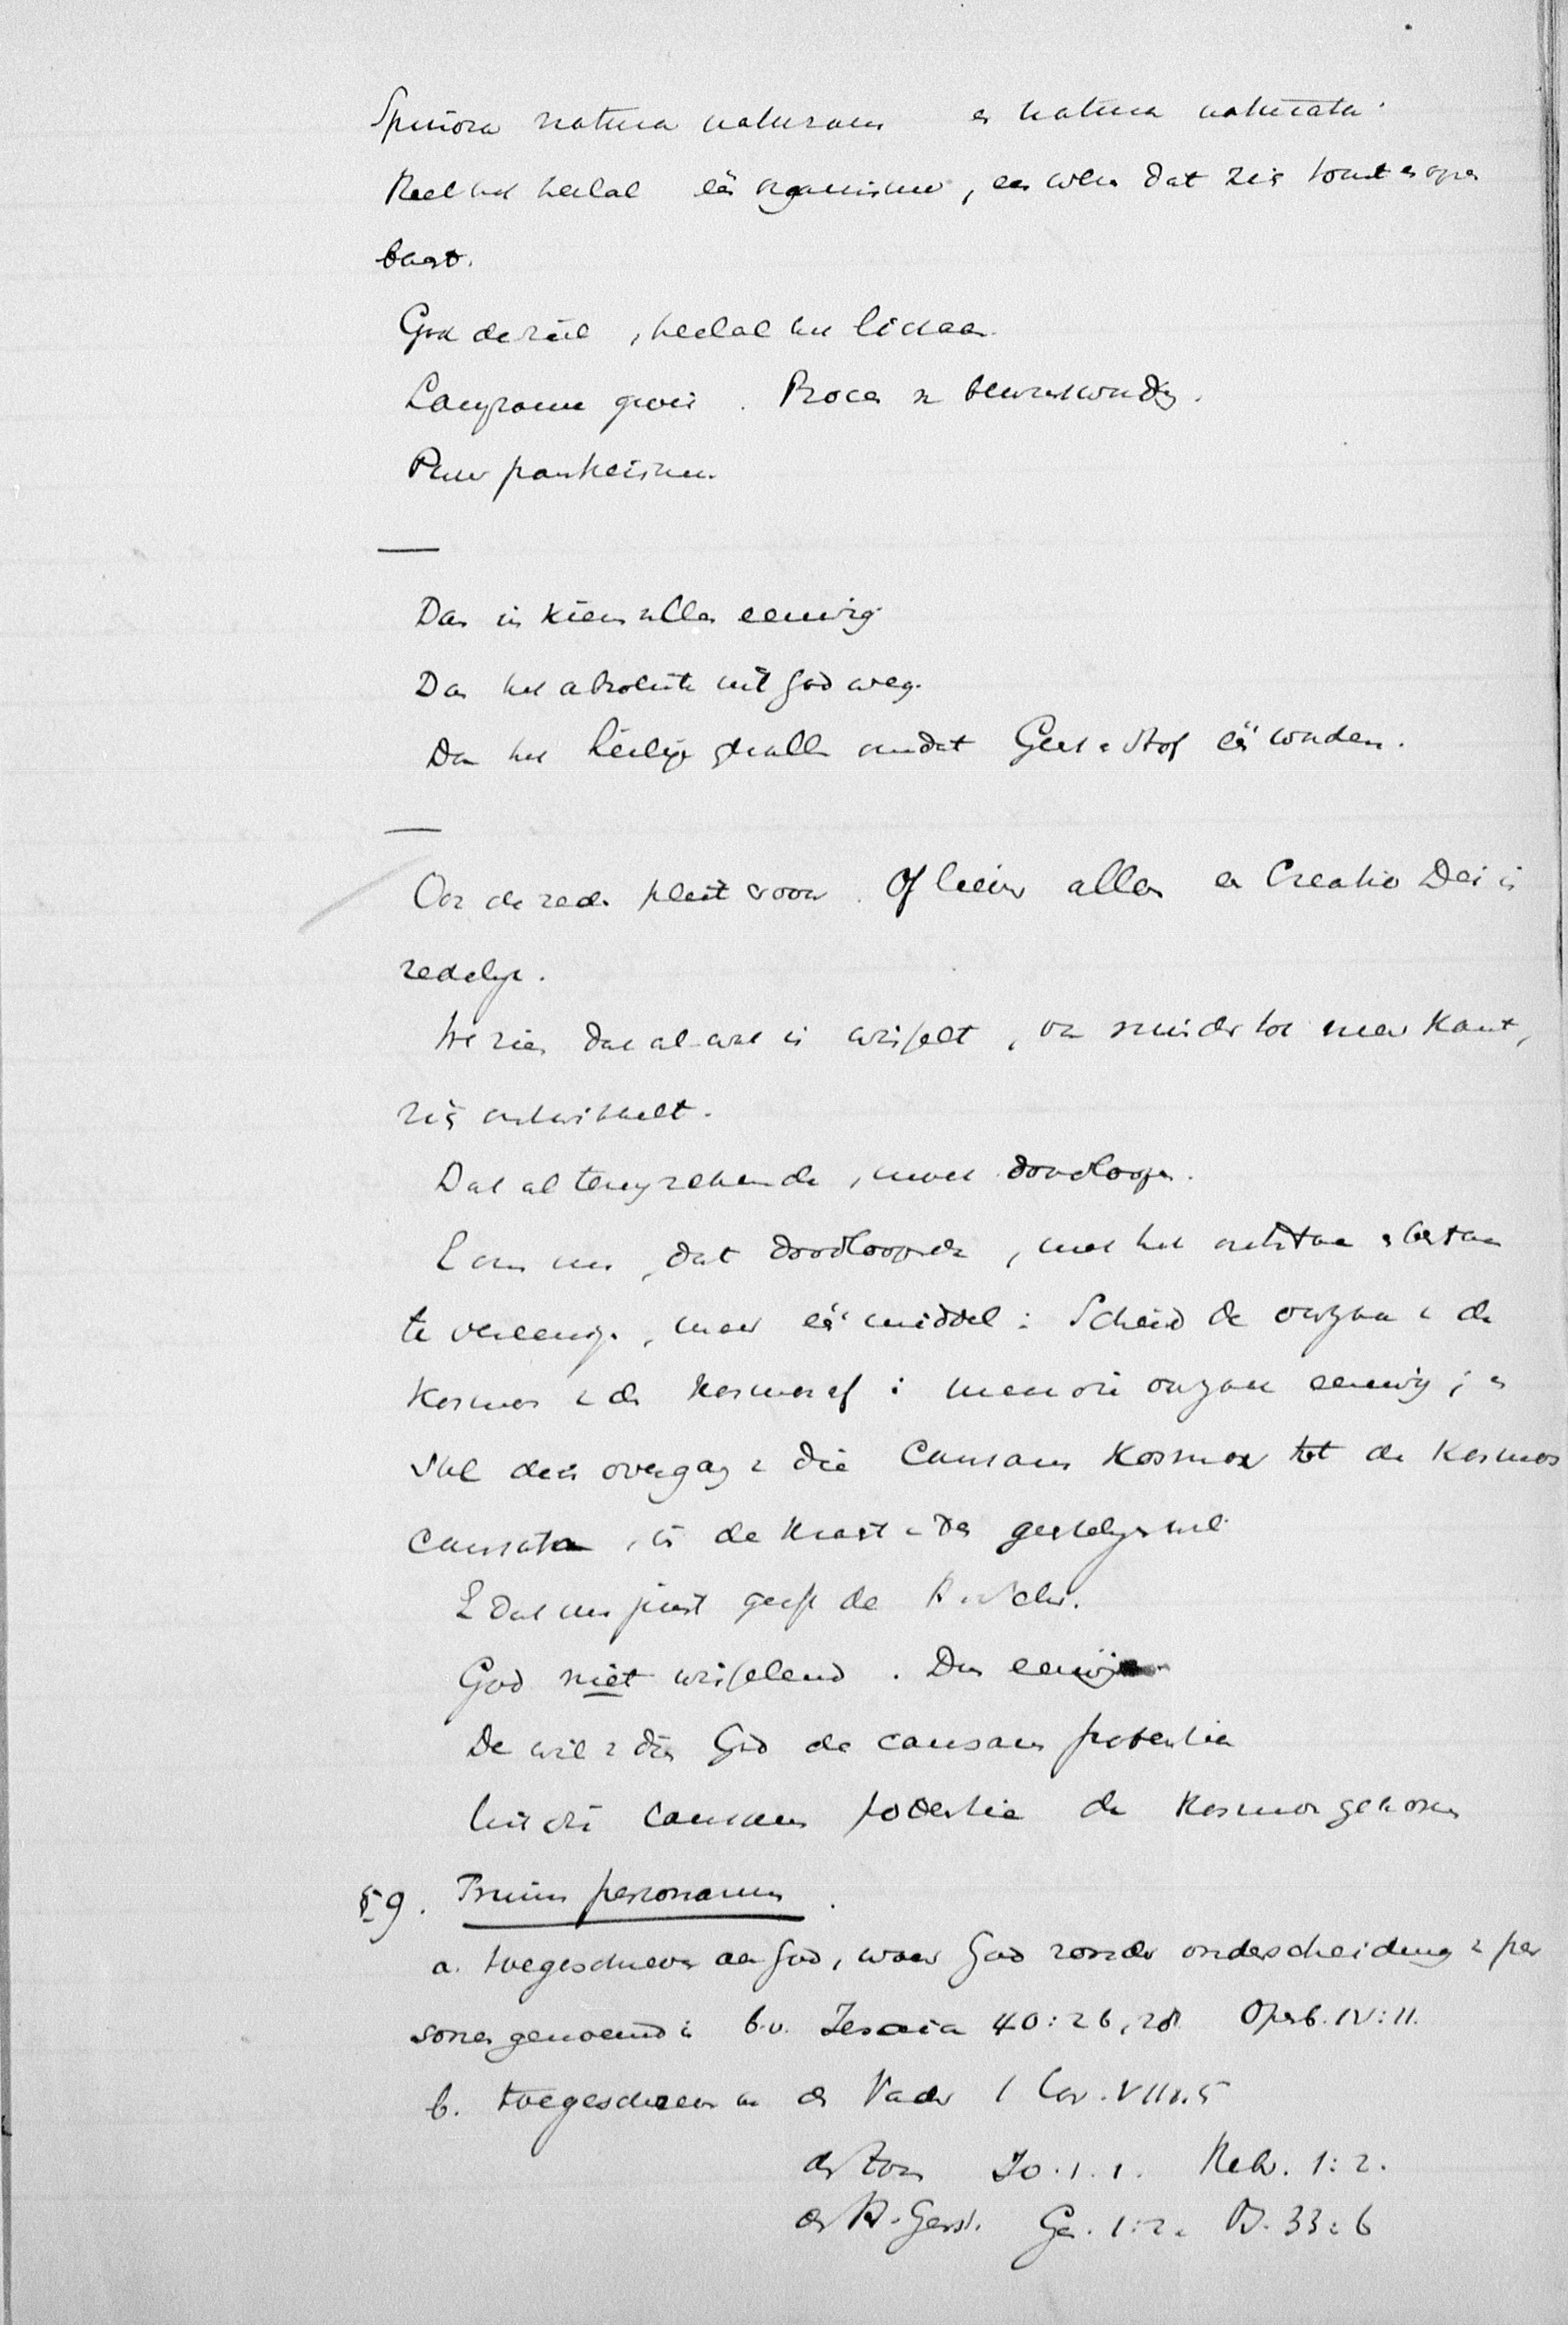 Spinoza natura naturans en natura naturata.
Heel het heelal één organisme, een wezen dat zich toont en open
baart.
God de ziel, heelal het lichaam
Langzame groei. Proces v bewustwording.
Puur pantheisme.
Dan in kiem alles eeuwig
Dan het absolute uit God weg.
Dan het heilige omdat Geest en Stof één worden.
Ook de rede pleit voor. Of liever alles en Creatio Dei is
redelijk.
We zien dat al wat is wisselt, van minder tot meer komt,
zich ontwikkelt.
Dat al terugrekenende, moet doodloopen.
En om nu, dat doodloopende, met het ontstaan en bestaan
te vereenig., maar één middel: Scheid de oorzaak v de
kosmos v de kosmos af: maak die oorzaak eeuwig; en
stel den overgang v die causans kosmos tot de kosmos
causata, in de kracht v de goddelijke wil
En dat nu juist geeft de H. Schr.
God niet wisselend. Dus eeuwig
De wil v dien God de causans potentia
Uit die causans potentia de kosmos geboren
§9. Trium personarum.
a. toegeschreven aan God, waar God zonder onderscheiding v per
sonen genoemd is b.v. Jesaia 40:26, 28. Openb. IV:11.
b. toegeschreven aan de Vader 1 Cor. VIII.5
de Zoon Jo. 1. 1. Hebr. 1:2.
de H. Geest. Gen. 1:2. Ps. 33:6